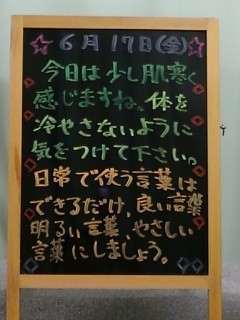 ☆6月17日(金)☆
今日は少し肌寒く
感じますね。体を
冷やさないように
気をつけて下さい。
日常で使う言葉は
できるだけ、良い言葉
明るい言葉、やさしい
言葉にしましょう。